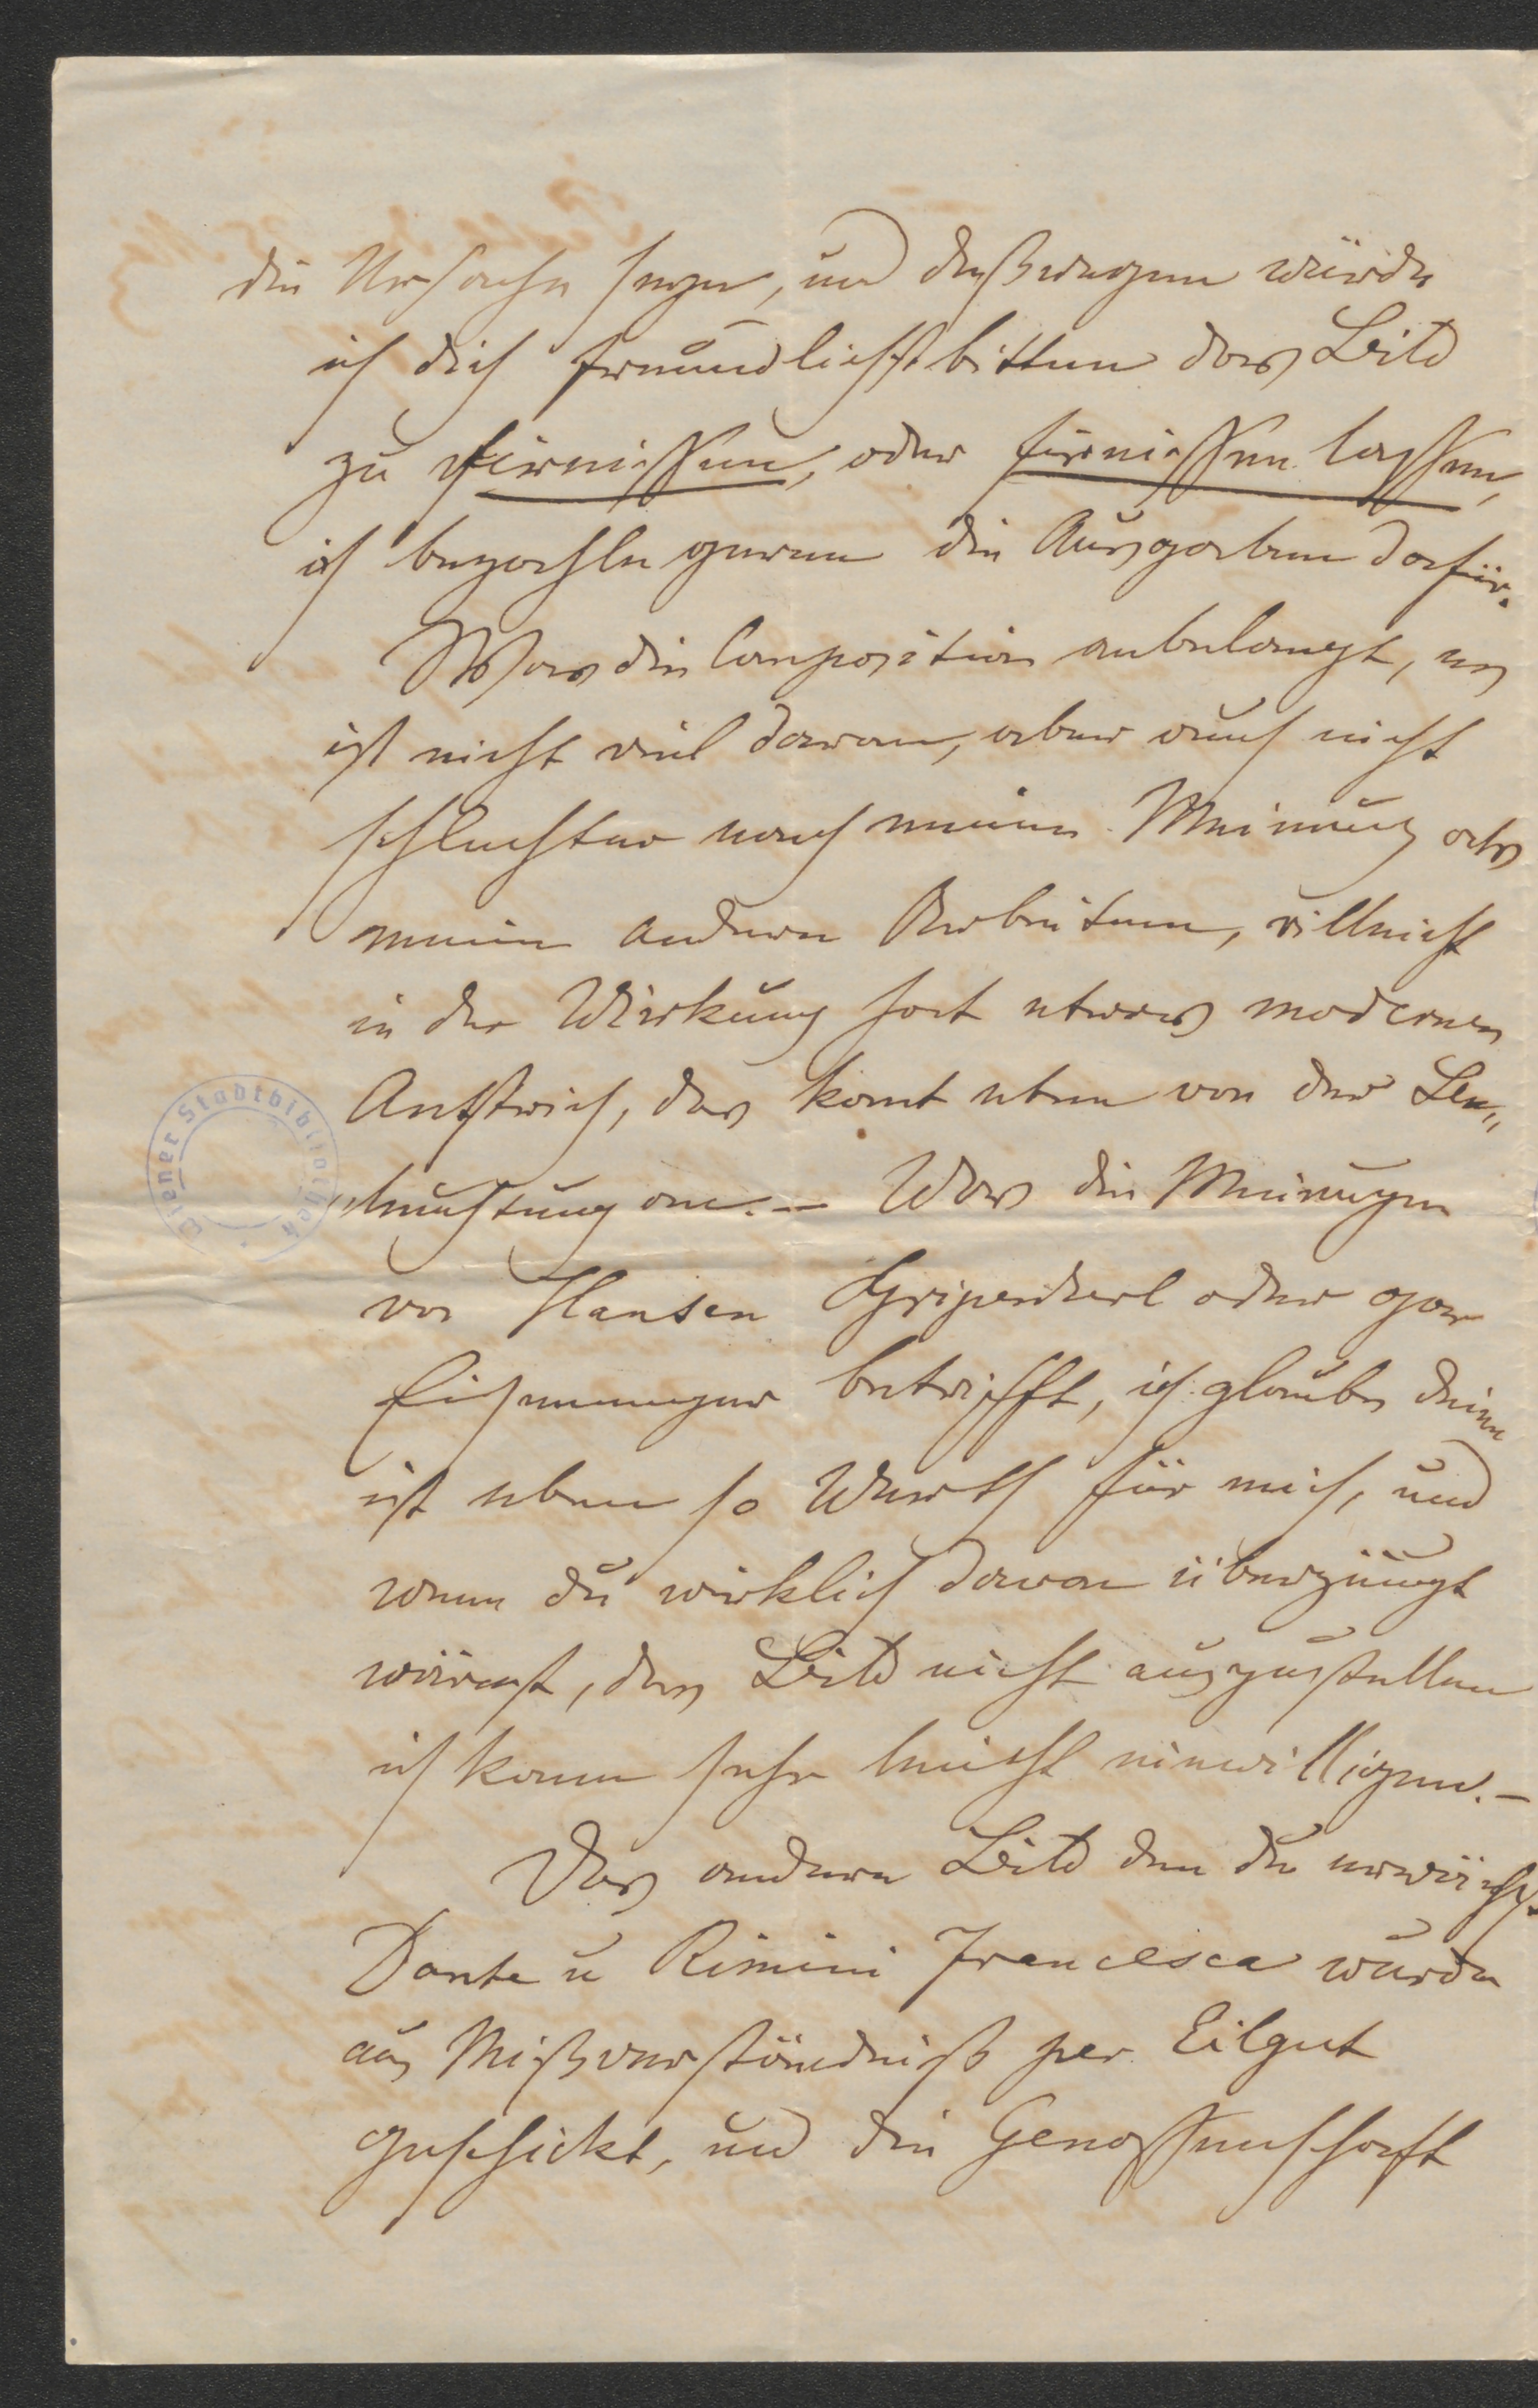 die Ursache seyn, und deßwegen würde
ich dich freundlichst bitten das Bild
zu firnissen, oder firnissen lassen,
ich bezahle gerne die Ausgaben dafür.
Was die Composition anbelangt, es
ist nicht viel daran, aber auch nicht
schlechter nach meiner Meinung als
meine andere Arbeiten, villeicht
in der Wirkung hat etwas modernen
Anstrich, das komt eben von der Be„
„leuchtung an. – Was die Meinugen
von Hansen Gripenkerl oder gar
Eisenmenger betrifft, ich glaube deine
ist eben so Werth für mich, und
wenn du wirklich davon überzeugt
wärest, das Bild nicht auszustellen
ich kann sehr leicht einwilligen. –
Das andere Bild den du erwä
Dante u Rimini Francesca wurde
aus Mißverständniß per Eilgut
geschickt, und die Genossenschaft
Wiener Stadtbibliothek